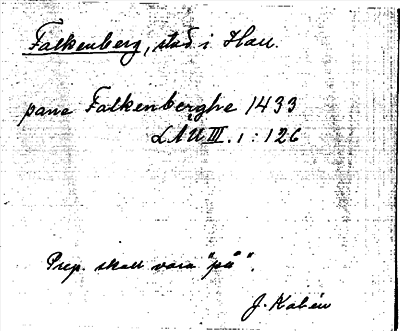 Falkenberg, stad i Hall.
pana Falkenberghe 1433
LÅU III. 1:126
Prep. skall vara "på".
J. Kalén